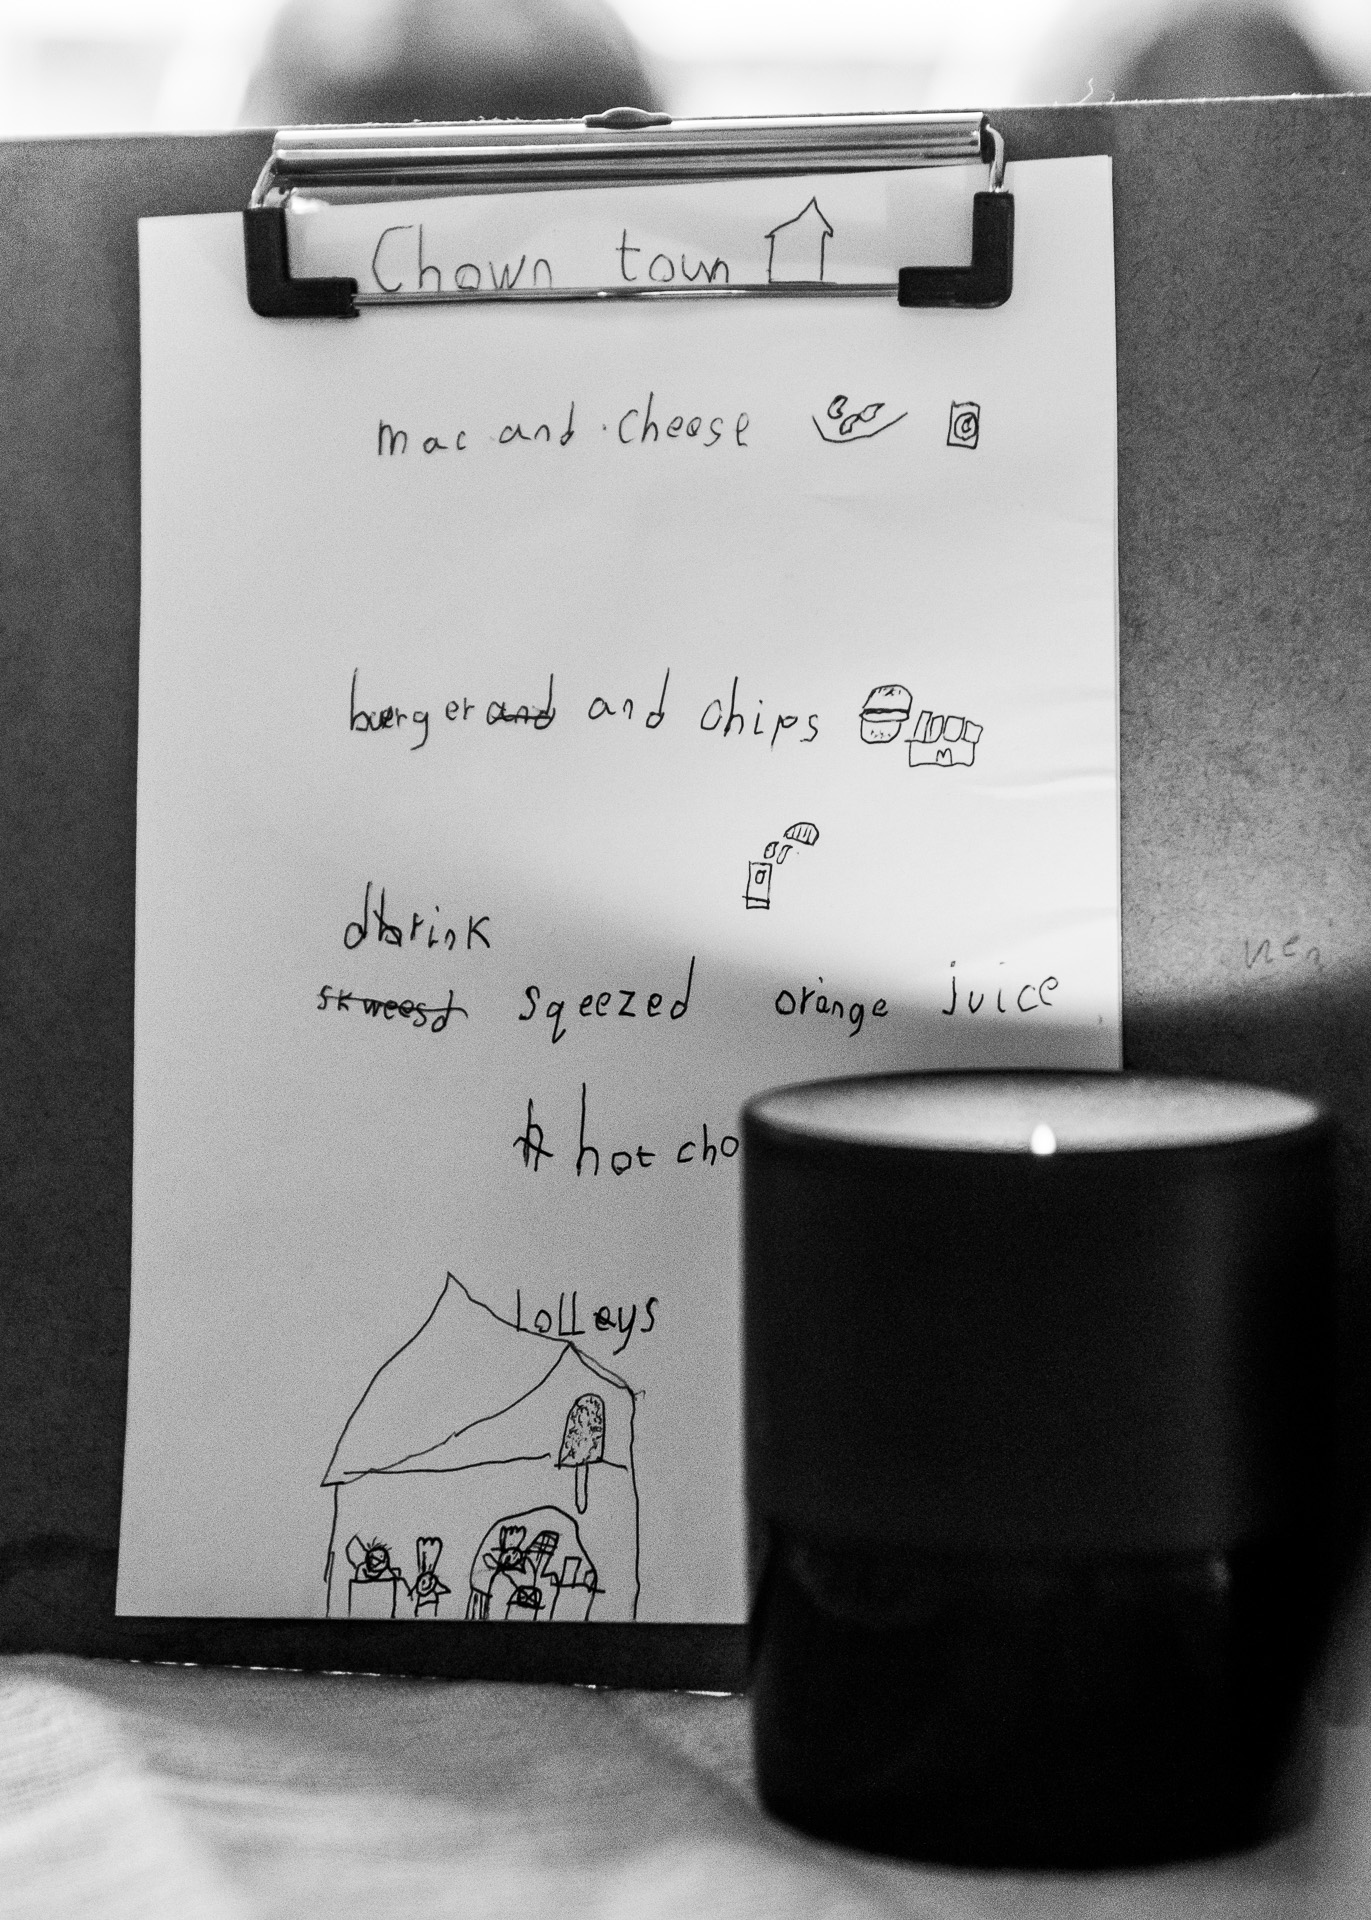 Chown town
mac and cheese
burger and and chips
M
drink
skweesd sqeezed orange juice
h hot cho
lolleys